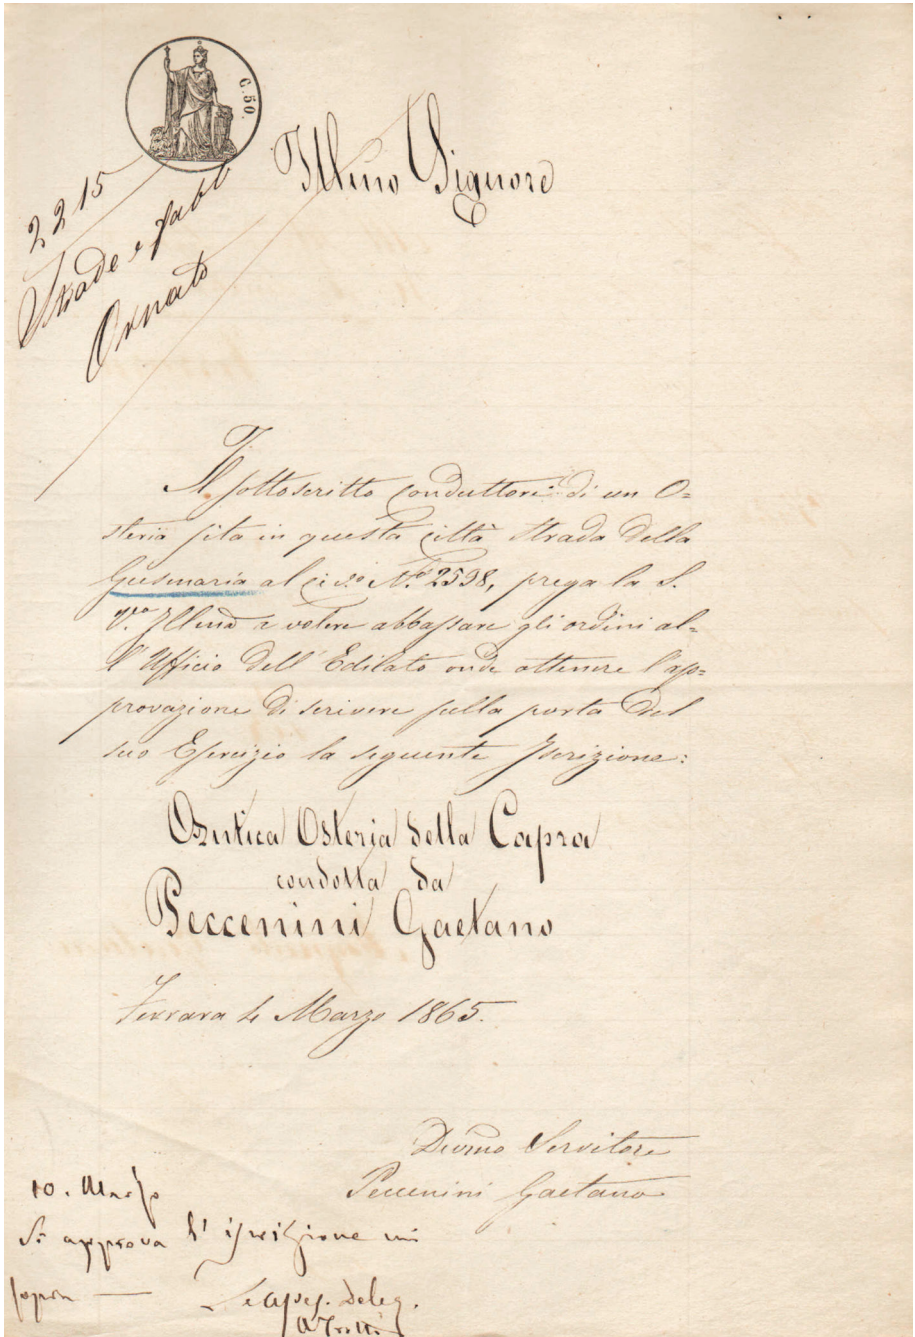 C. 50.
Illmo Signore
2215
Strade e fabb
Ornato
Il sottoscritto conduttore di un O=
steria sita in questa città strada della
Gusmaria al civo No. 2598, prega la S.
V.a Illma a volere abbassare gli ordini al=
l'Ufficio dell'Edilato onde ottenere l'ap=
provazione di scrivere sulla porta del
suo Esercizio la seguente Iscrizione:
Antica Osteria della Capra
condotta da
Peccenini Gaetano
Ferrara 4 Marzo 1865.
Devmo Servitore
Peccenini Gaetano
10. Marzo
Si approva l'iscrizione
sopra —
deleg.